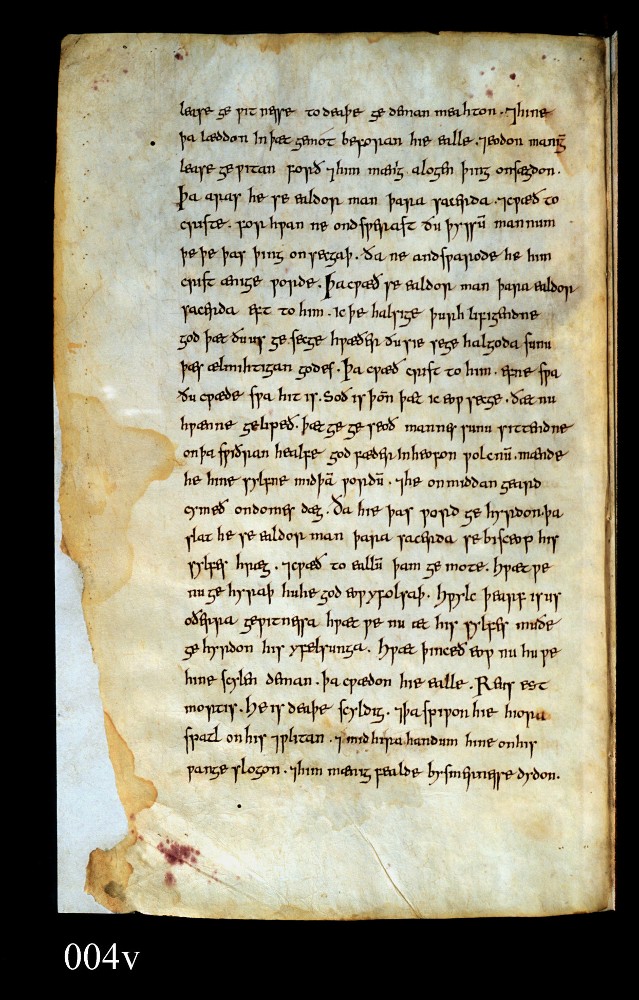 lease ge ƿitnesse to deaþe ge deman meahton. ⁊ hine
þa læddon in þæt gemót beforan hie ealle. ⁊ eodon manig
lease geƿitan forð ⁊ him mænig alogen þing onsægdon.
Þa aras he se ealdor man þara sacerda. ⁊ cƿæð to
criste. for hƿan ne ondsƿerast ðu þyssū mannum
þe þe þas þing on secgaþ. ða ne andsƿarode he him
crist ænige ƿorde. Þa cƿæð se ealdor man þara ealdor
sacerda eft to him. ic þe halsige þurh lifigendne
god þæt ðu us ge secge hƿæðer ðu sie se ge halgoda sunu
þæs ælmihtigan godes. Þa cƿæð crist to him. efne sƿa
ðu cƿæde sƿa hit is. Soð is þōn þæt ic eoƿ secge. ðæt nu
hƿænne gelimpeð. þæt ge ge seoð mannes sunu sittendne
on þa sƿiðran healfe god fæder in heofon ƿolcnū. mænde
he hine sylfne mid þā ƿordū. ⁊ he on middan geard
cymeð on domes dæg. Ða hie þas ƿord ge hyrdon. þa
slat he se ealdor man þara sacerda se bisceop his
sylfes hrægl. ⁊ cƿæð to eallū þam ge mote. Hƿæt ƿe
nu ge hyraþ hu he god eoƿ yfolsaþ. Hƿylc þearf is us
oðerra geƿitnessa hƿæt ƿe nu æt his sylfes muðe
ge hyrdon his yfelsunga. Hƿæt þinceð eoƿ nu hu ƿe
hine scylen deman. þa cƿædon hie ealle. Reus est
mortis. He is deaþe scyldig. ⁊ þa spiƿon hie hiora
spatl on his ⁊ƿlitan. ⁊ mid hira handum hine on his
ƿange slogon. ⁊ him mænig fealde bysmernesse dydon.
004v